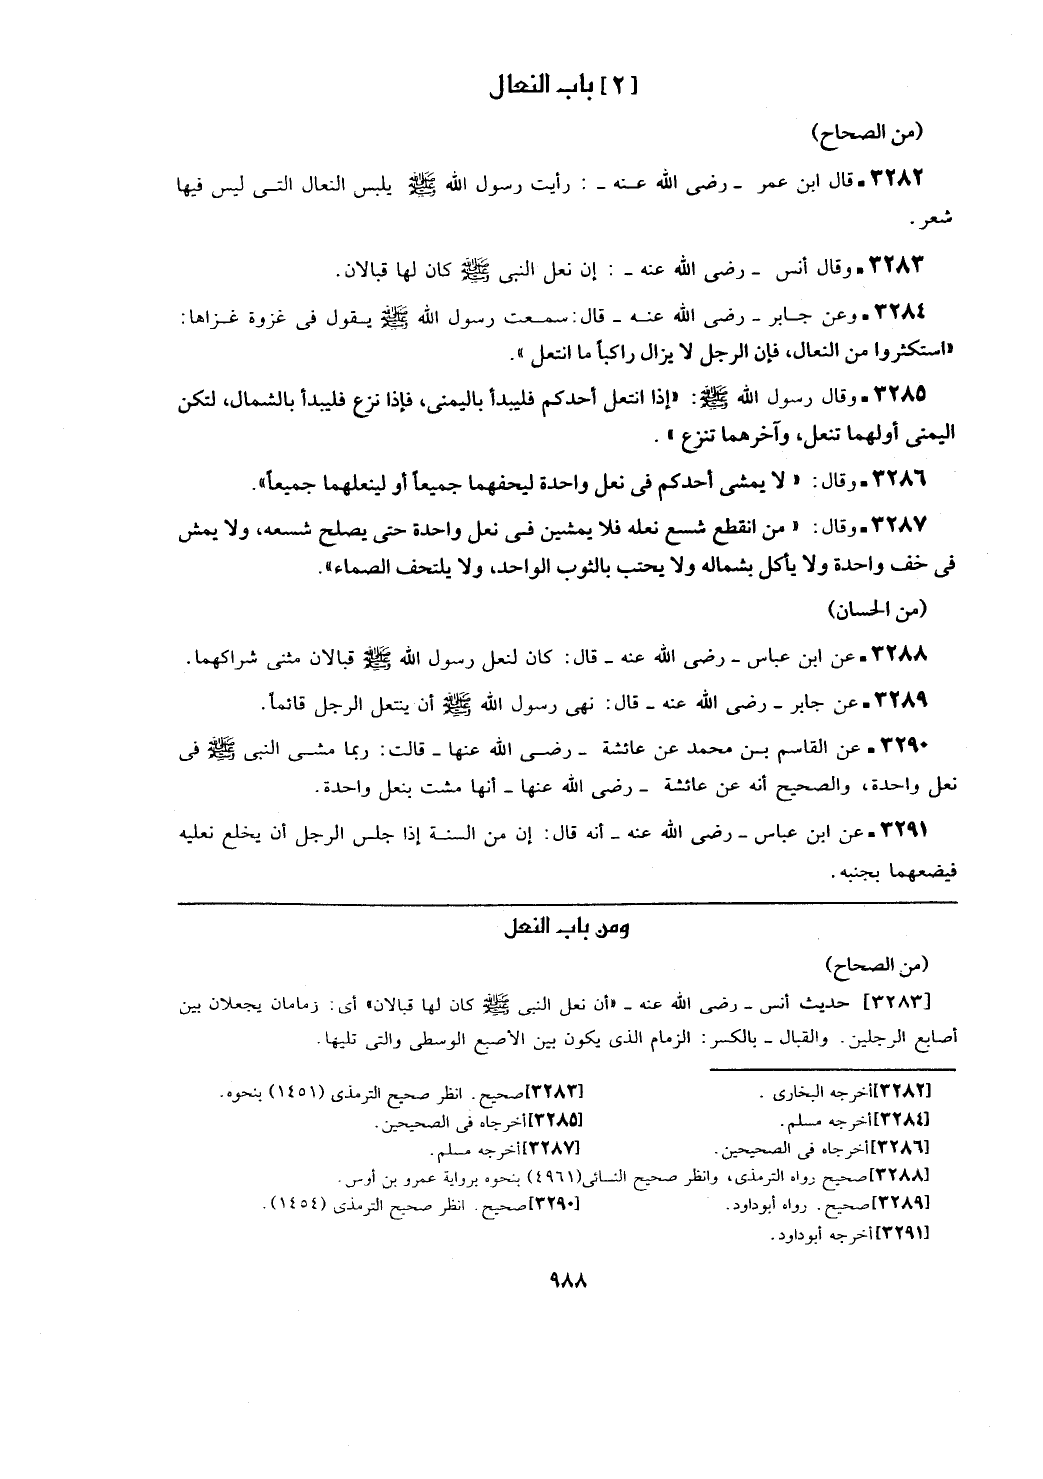 [٢] باب النعال
(من الصحاح)
٣٢٨٢ـ قال ابن عمر ـ رضى الله عنه ـ : رأيت رسول الله ﷺ يلبس النعال التى ليس فيها
شعر .
٣٢٨٣ـ وقال أنس ـ رضى الله عنه ـ : إن نعل النبى ﷺ كان لها قبالان.
٣٢٨٤ـ وعن جابر ـ رضى الله عنه ـ قال: سمعت رسول الله ﷺ يقول فى غزوة غزاها:
«استكثروا من النعال، فإن الرجل لا يزال راكباً ما انتعل ».
٣٢٨٥ـ وقال رسول الله ﷺ: «إذا انتعل أحدكم فليبدأ باليمنى، فإذا نزع فليبدأ بالشمال، لتكن
اليمنى أولهما تنعل، وآخرهما تنزع » .
٣٢٨٦ـ وقال: « لا يمشى أحدكم فى نعل واحدة ليحفهما جميعاً أو لينعلهما جميعاً».
٣٢٨٧ـ وقال: « من انقطع شسع نعله فلا يمشين فى نعل واحدة حتى يصلح شسعه، ولا يمش
فى خف واحدة ولا يأكل بشماله ولا يحتب بالثوب الواحد، ولا يلتحف الصماء».
(من الحسان)
٣٢٨٨ـ عن ابن عباس ـ رضى الله عنه ـ قال: كان لنعل رسول الله ﷺ قبالان مثنى شراكهما.
٣٢٨٩ـ عن جابر ـ رضى الله عنه ـ قال: نهى رسول الله ﷺ أن ينتعل الرجل قائماً.
٣٢٩٠ـ عن القاسم بن محمد عن عائشة ـ رضى الله عنها ـ قالت: ربما مشى النبى ﷺ فى
نعل واحدة، والصحيح أنه عن عائشة ـ رضى الله عنها ـ أنها مشت بنعل واحدة.
٣٢٩١ـ عن ابن عباس ـ رضى الله عنه ـ أنه قال: إن من السنة إذا جلس الرجل أن يخلع نعليه
فيضعهما بجنبه.
ومن باب النعل
(من الصحاح)
[٣٢٨٣] حديث أنس ـ رضى الله عنه ـ «أن نعل النبى ﷺ كان لها قبالان» أى: زمامان يجعلان بين
أصابع الرجلين. والقبال ـ بالكسر: الزمام الذى يكون بين الأصبع الوسطى والتى تليها.
[٣٢٨٢]أخرجه البخارى . [٣٢٨٣]صحيح. انظر صحيح الترمذى (١٤٥١) بنحوه.
[٣٢٨٤]أخرجه مسلم. [٣٢٨٥]أخرجاه فى الصحيحين.
[٣٢٨٦]أخرجاه فى الصحيحين. [٣٢٨٧]أخرجه مسلم.
[٣٢٨٨]صحيح رواه الترمذى، وانظر صحيح النسائى(٤٩٦١) بنحوه برواية عمرو بن أوس.
[٣٢٨٩]صحيح. رواه أبوداود. [٣٢٩٠]صحيح. انظر صحيح الترمذى (١٤٥٤).
[٣٢٩١]أخرجه أبوداود.
٩٨٨